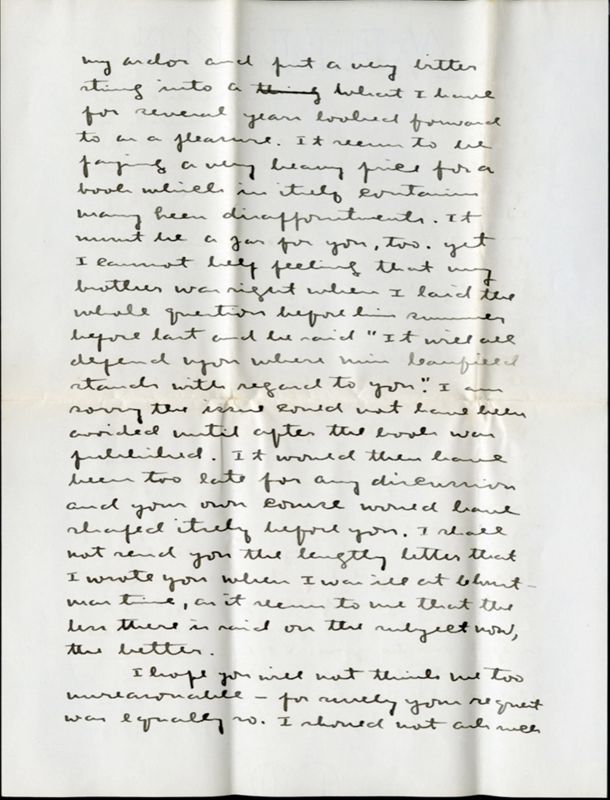 my ardor and put a very bitter
sting into a thing what I have
for several years looked forward
to as a pleasure. It seems to be
paying a very heavy price for a
book which in itself contains
many keen disappointments. It
must be a jar for you, too. yet
I cannot help feeling that my
brother was right when I laid the
whole question before him summer
before last and he said "It will all
depend upon where Miss Canfield
stands with regard to you." I am
sorry the issue could not have been
avoided until after the book was
published. It would then have
been too late for any discussion
and your own course would have
shaped itself before you. I shall
not send you the lengthy letter that
I wrote you when I was ill at Christ-
mas time, as it seems to me that the
less there is said on the subject now,
the better.
I hope you will not think me too
unreasonable – for surely your request
was equally so. I should not ask such